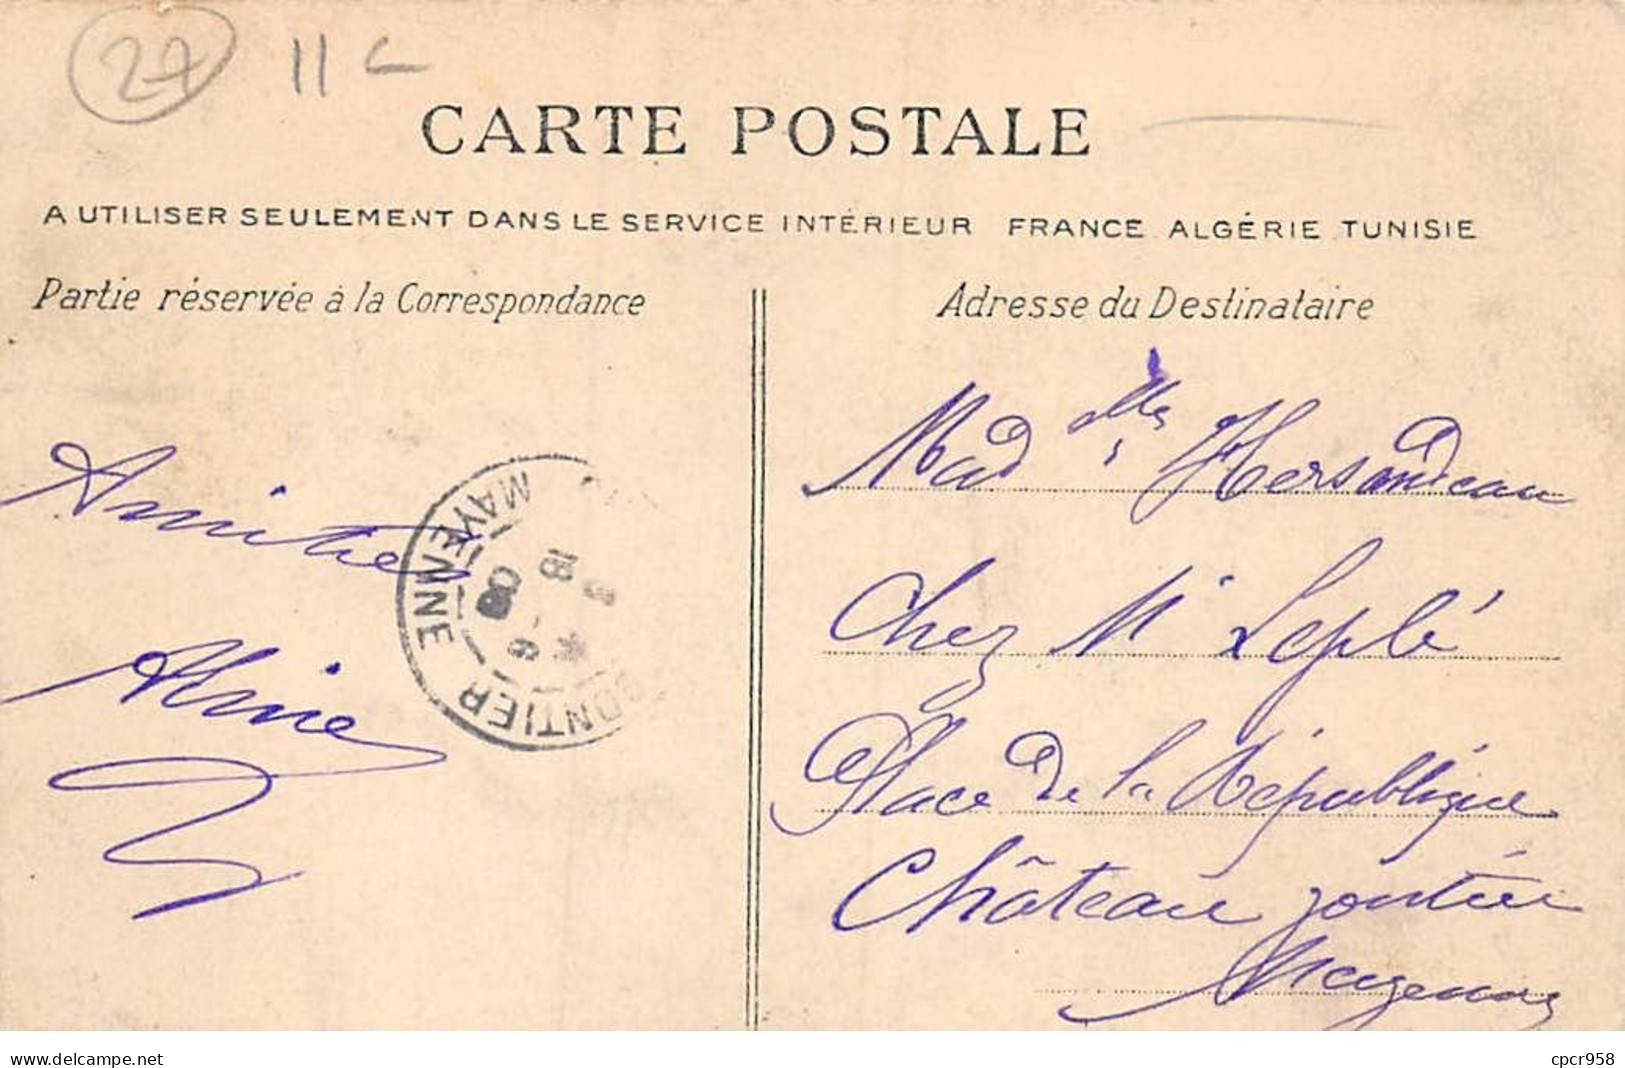 27 11 c
CARTE POSTALE
A UTILISER SEULEMENT DANS LE SERVICE INTÉRIEUR FRANCE ALGÉRIE TUNISIE
Partie réservée à la Correspondance
Adresse du Destinataire
Amitiés
Aline
MAYENNE
18
6
09
GONTIER
Mad elle Hersandeau
Chez Mr Leplé
Place de la République
Château gontier
Mayenne
cpcr958